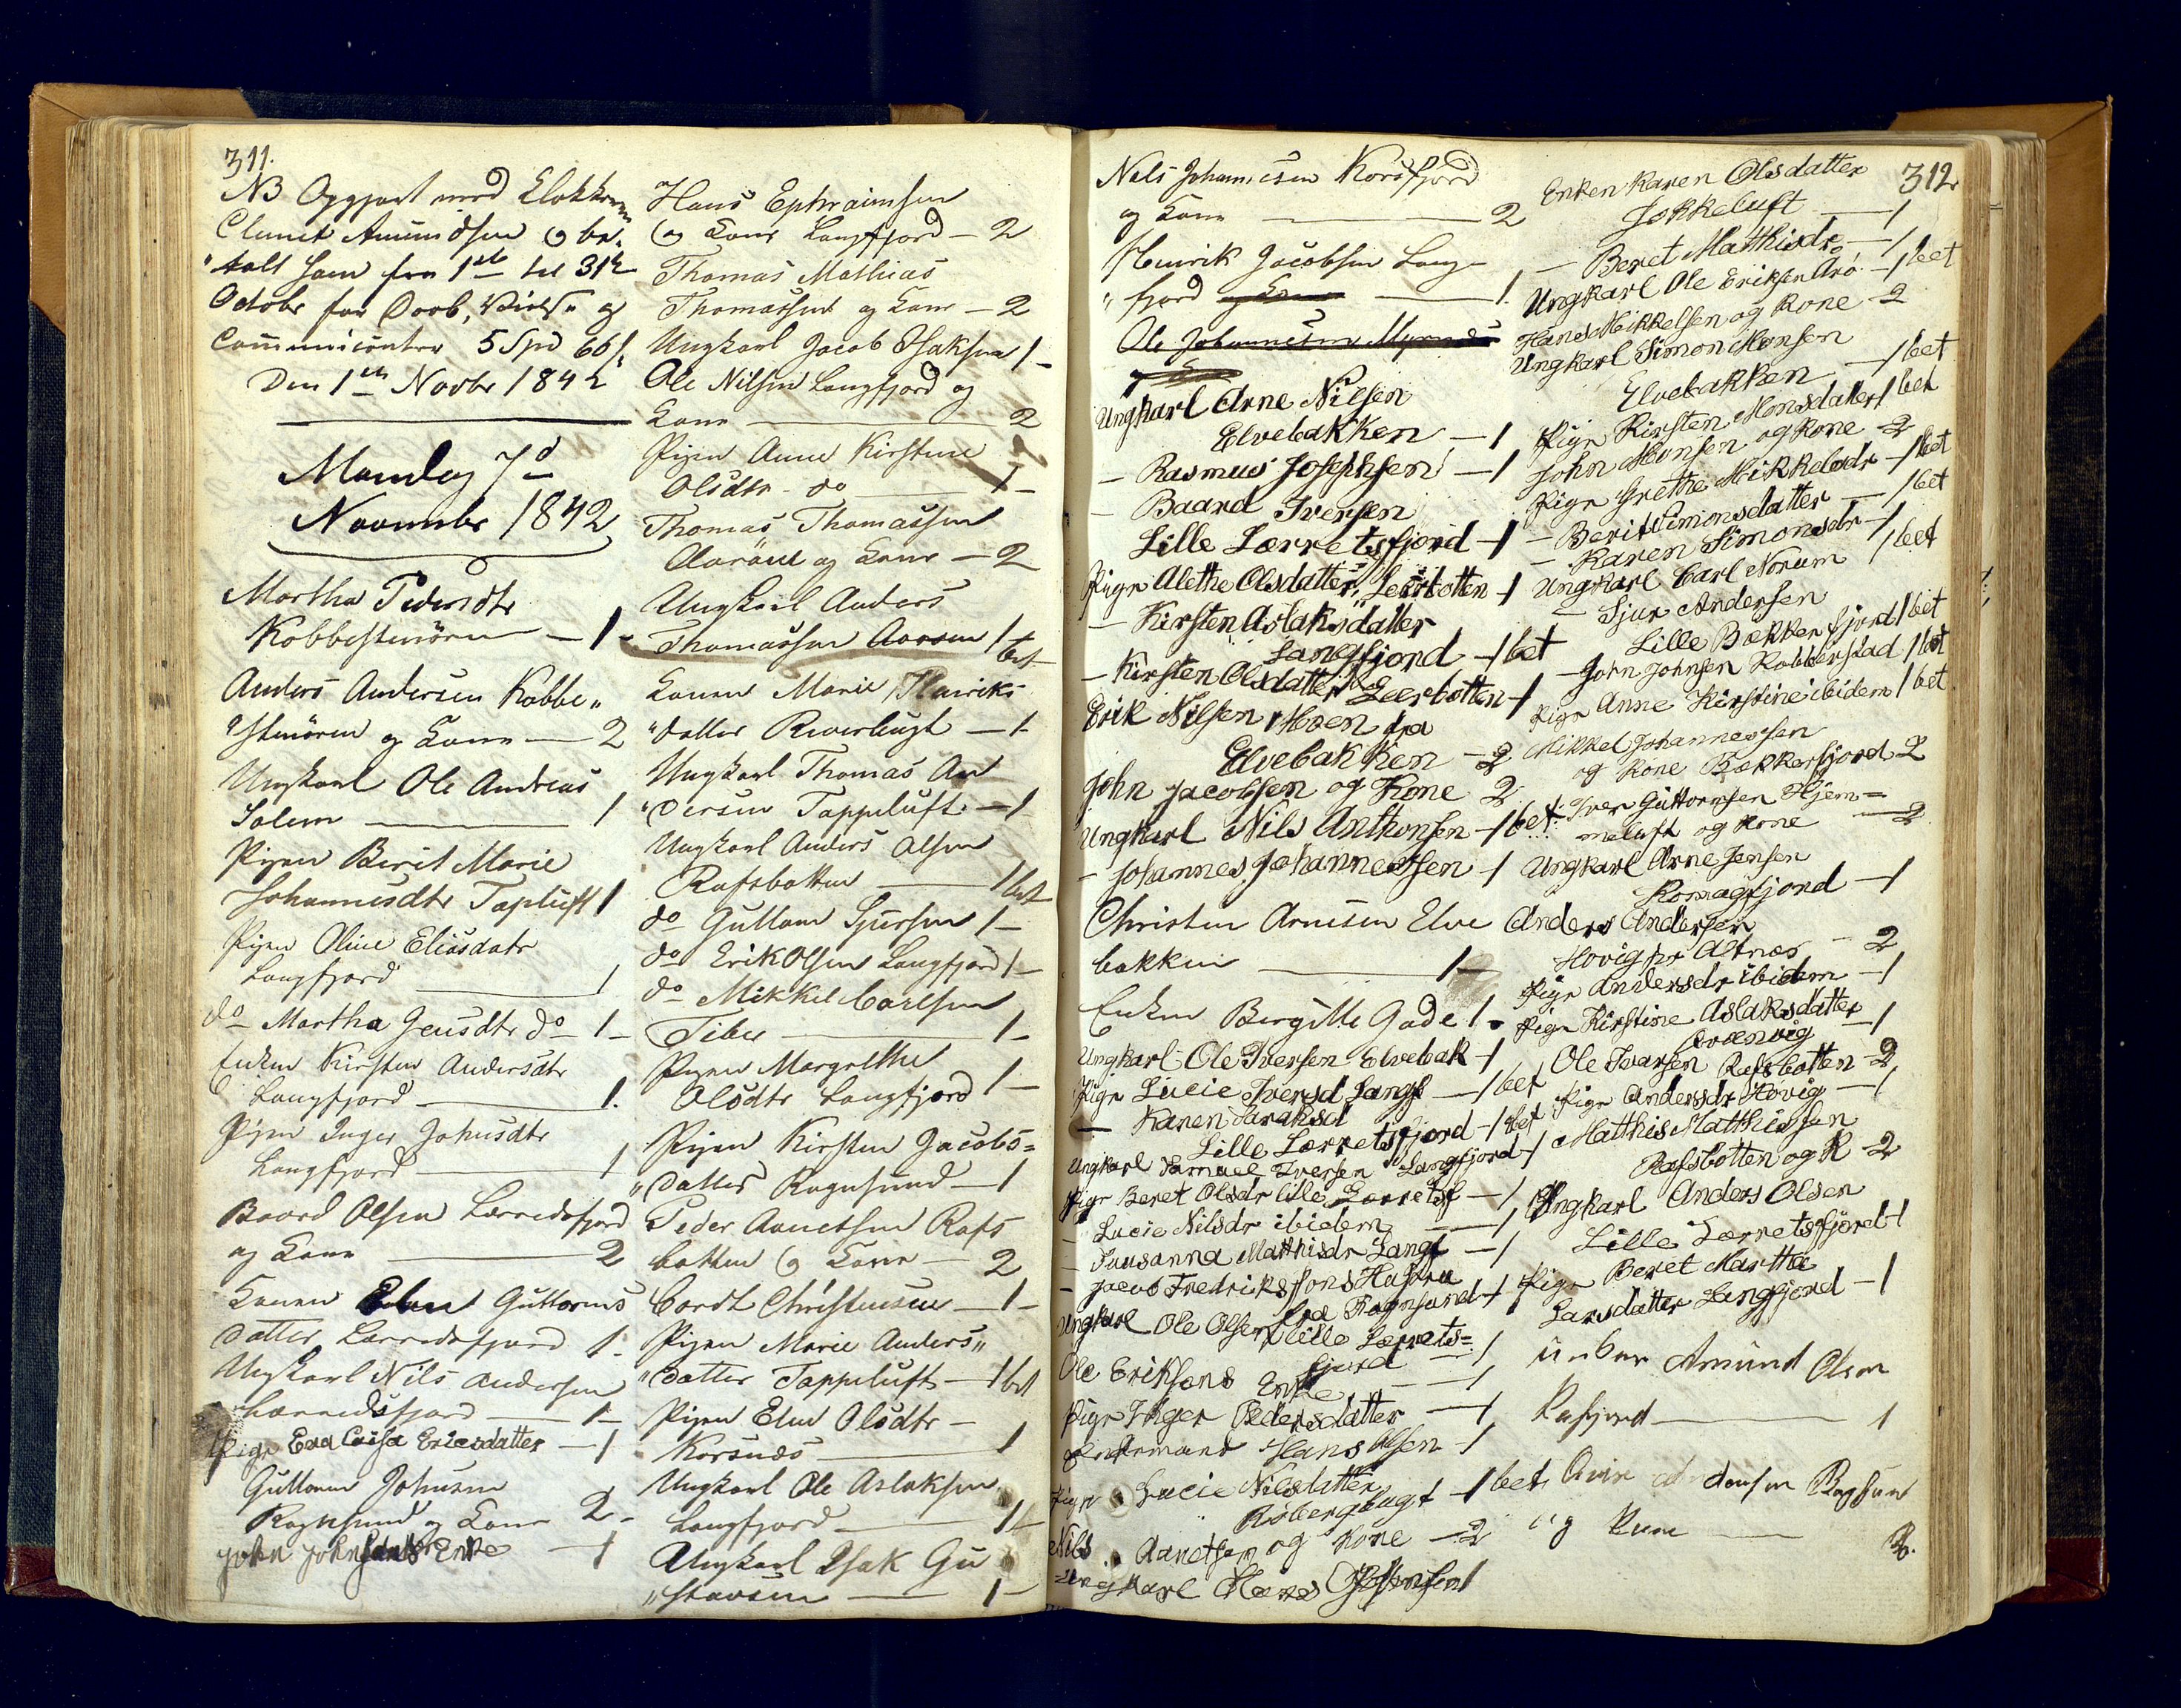 311.
NB Opgjort med Klokkeren
Clemet Amundsen og be„
„talt ham fra 1ste til 31te
October for Daab, Vielse og
Communicanter 5 Spd 66 ß.
Den 1ste Novbr 1842
Mandag 7d
November 1842
Martha Pedersdtr
Kobbestnören — 1 -
Anders Andersen Kobbe„
„stnören og Kone — 2
Ungkarl Ole Andreas
Salem — 1
Pigen Berit Marie
Johannesdtr Tapluft 1
Pigen Oline Eliasdatr
Langfjord — 1
do Martha Jensdtr do 1 -
Enken Kirsten Andersdtr
Langfjord — 1.
Pigen Inger Johnsdtr
Langfjord — 1
Baard Olsen Lærredsfjord
og Kone — 2
Konen Elen Guttorms
datter Lærredsfjord 1 -
Ungkarl Nils Andersen
Lærredsfjord — 1 -
Pige Eva Caisa Ericsdatter — 1
Guttorm Johnsen
Rognsund og Kone 2 -
John Johnsens Enke — 1
Hans Ephraimsen
og Kone Langfjord — 2
Thomas Mathias
Thomassen og Kone — 2
Ungkarl Jacob Isaksen 1 -
Ole Nilsen Langfjord og
Kone — 2
Pigen Anne Kirstine
Olsdtr do — 1 -
Thomas Thomassen
Aaröen og Kone — 2
Ungkarl Anders
Thomassen Aaroen 1 bet
Konen Marie Henriks
„datter Reverbugt — 1 -
Ungkarl Thomas An
„dersen Tappeluft — 1
Ungkarl Anders Olsen
Rafsbotten — 1 bet
do Guttorm Sjursen 1 -
do Erik Olsen Langfjord 1 -
do Mikkel Carlsen
Tiber — 1 -
Pigen Margrethe
Olsdtr Langfjord 1 -
Pigen Kirsten Jacobs=
„datter Rognsund — 1
Peder Arnetsen Rafs
botten og Kone — 2
Cordt Christensen — 1 -
Pigen Marie Anders„
„datter Tappeluft — 1 bet
Pigen Elen Olsdtr —
Korsnæs — 1
Ungkarl Ole Aslaksen
Langfjord — 1 -
Ungkarl Isak Gu
„stavsen — 1 -
312
Nils Johannesen Korsfjord
og Kone — 2
Henrik Jacobsen Lang„
„fjord og Kone — 1.
Ole Johannesen Myrnes
Ungkarl Arne Nilsen
Elvebakken — 1
— Rasmus Josephsen — 1
— Baard Iversen
Lille Lerretsfjord — 1
Pige Alethe Olsdatter, Leerbotten — 1
— Kirsten Aslaksdatter
Langfjord — 1 bet
— Kirsten Olsdatter Leerbotten — 1
Erik Nilsen Moen fra
Elvebakken — 2
John Jacobsen og Kone 2
Ungkarl Nils Anthonsen — 1 bet
— Johannes Johannessen — 1
Christen Arnesen Elve
bakken — 1 -
Enken Bergitte Gade 1 -
Ungkarl Ole Iversen Elvebak — 1
Pige Lucie Iversd Langf — 1 bet
— Karen Isaksd
Lille Lærretsfjord — 1 bet
Ungkarl Samuel Iversen Langfjord — 1
Pige Beret Olsdr lille Lerretsf — 1
— Lucie Nilsdr ibidem — 1
— Susanna Matthisdr Langf — 1
— Jacob Fredrikssons Hustru
fra Rognsund — 1
Ungkarl Ole Olsen lille Lærrets=
fjord — 1
Ole Eriksens Enke — 1
Pige Inger Pedersdatter — 1
Enkemand Hans Olsen — 1
Pige Lucie Nilsdatter
Røbergbugt — 1 bet
Nils Arnetsen og Kone — 2
Ungkarl Hans Johansen 1
Enken Karen Olsdatter
Jokkeluft — 1
— Beret Matthisdr — 1
Ungkarl Ole Eriksen Arö — 1 bet
Hans Mikkelsen og Kone — 2
Ungkarl Simon Monsen
Elvebakken — 1 bet
Pige Kirsten Monsdatter 1 bet
John Monsen og Kone — 2
Pige Grethe Mikkelsdr — 1 bet
— Berit Simonsdatter — 1 bet
— Karen Simonsdr — 1
Ungkarl Carl Norum 1 bet
— Sjur Andersen
Lille Bekkerfjord 1 bet
— John Johnsen Kobberstad 1 bet
Pige Anne Kirstine ibidem 1 bet
Mikkel Johannessen
og Kone Bækkerfjord 2
Iver Guttormsen Hjem=
meluft og Kone — 2
Ungkarl Arne Jensen
Komagfjord — 1
Anders Andersen
Hovig pr Altnæs — 2
Pige Andersdr ibidem — 1
Pige Kirstine Aslaksdatter
— 1
Ole Ivarsen Rafsbotten — 2
Pige Andersdr Hovig — 1
Matthis Matthissen
Rafsbotten og K — 2
Ungkarl Anders Olsen
Lille Lærretsfjord — 1
Pige Beret Martha
Larsdatter Langfjord — 1
Amund Olsen
Rafsjord — 1
og Kone — 2.